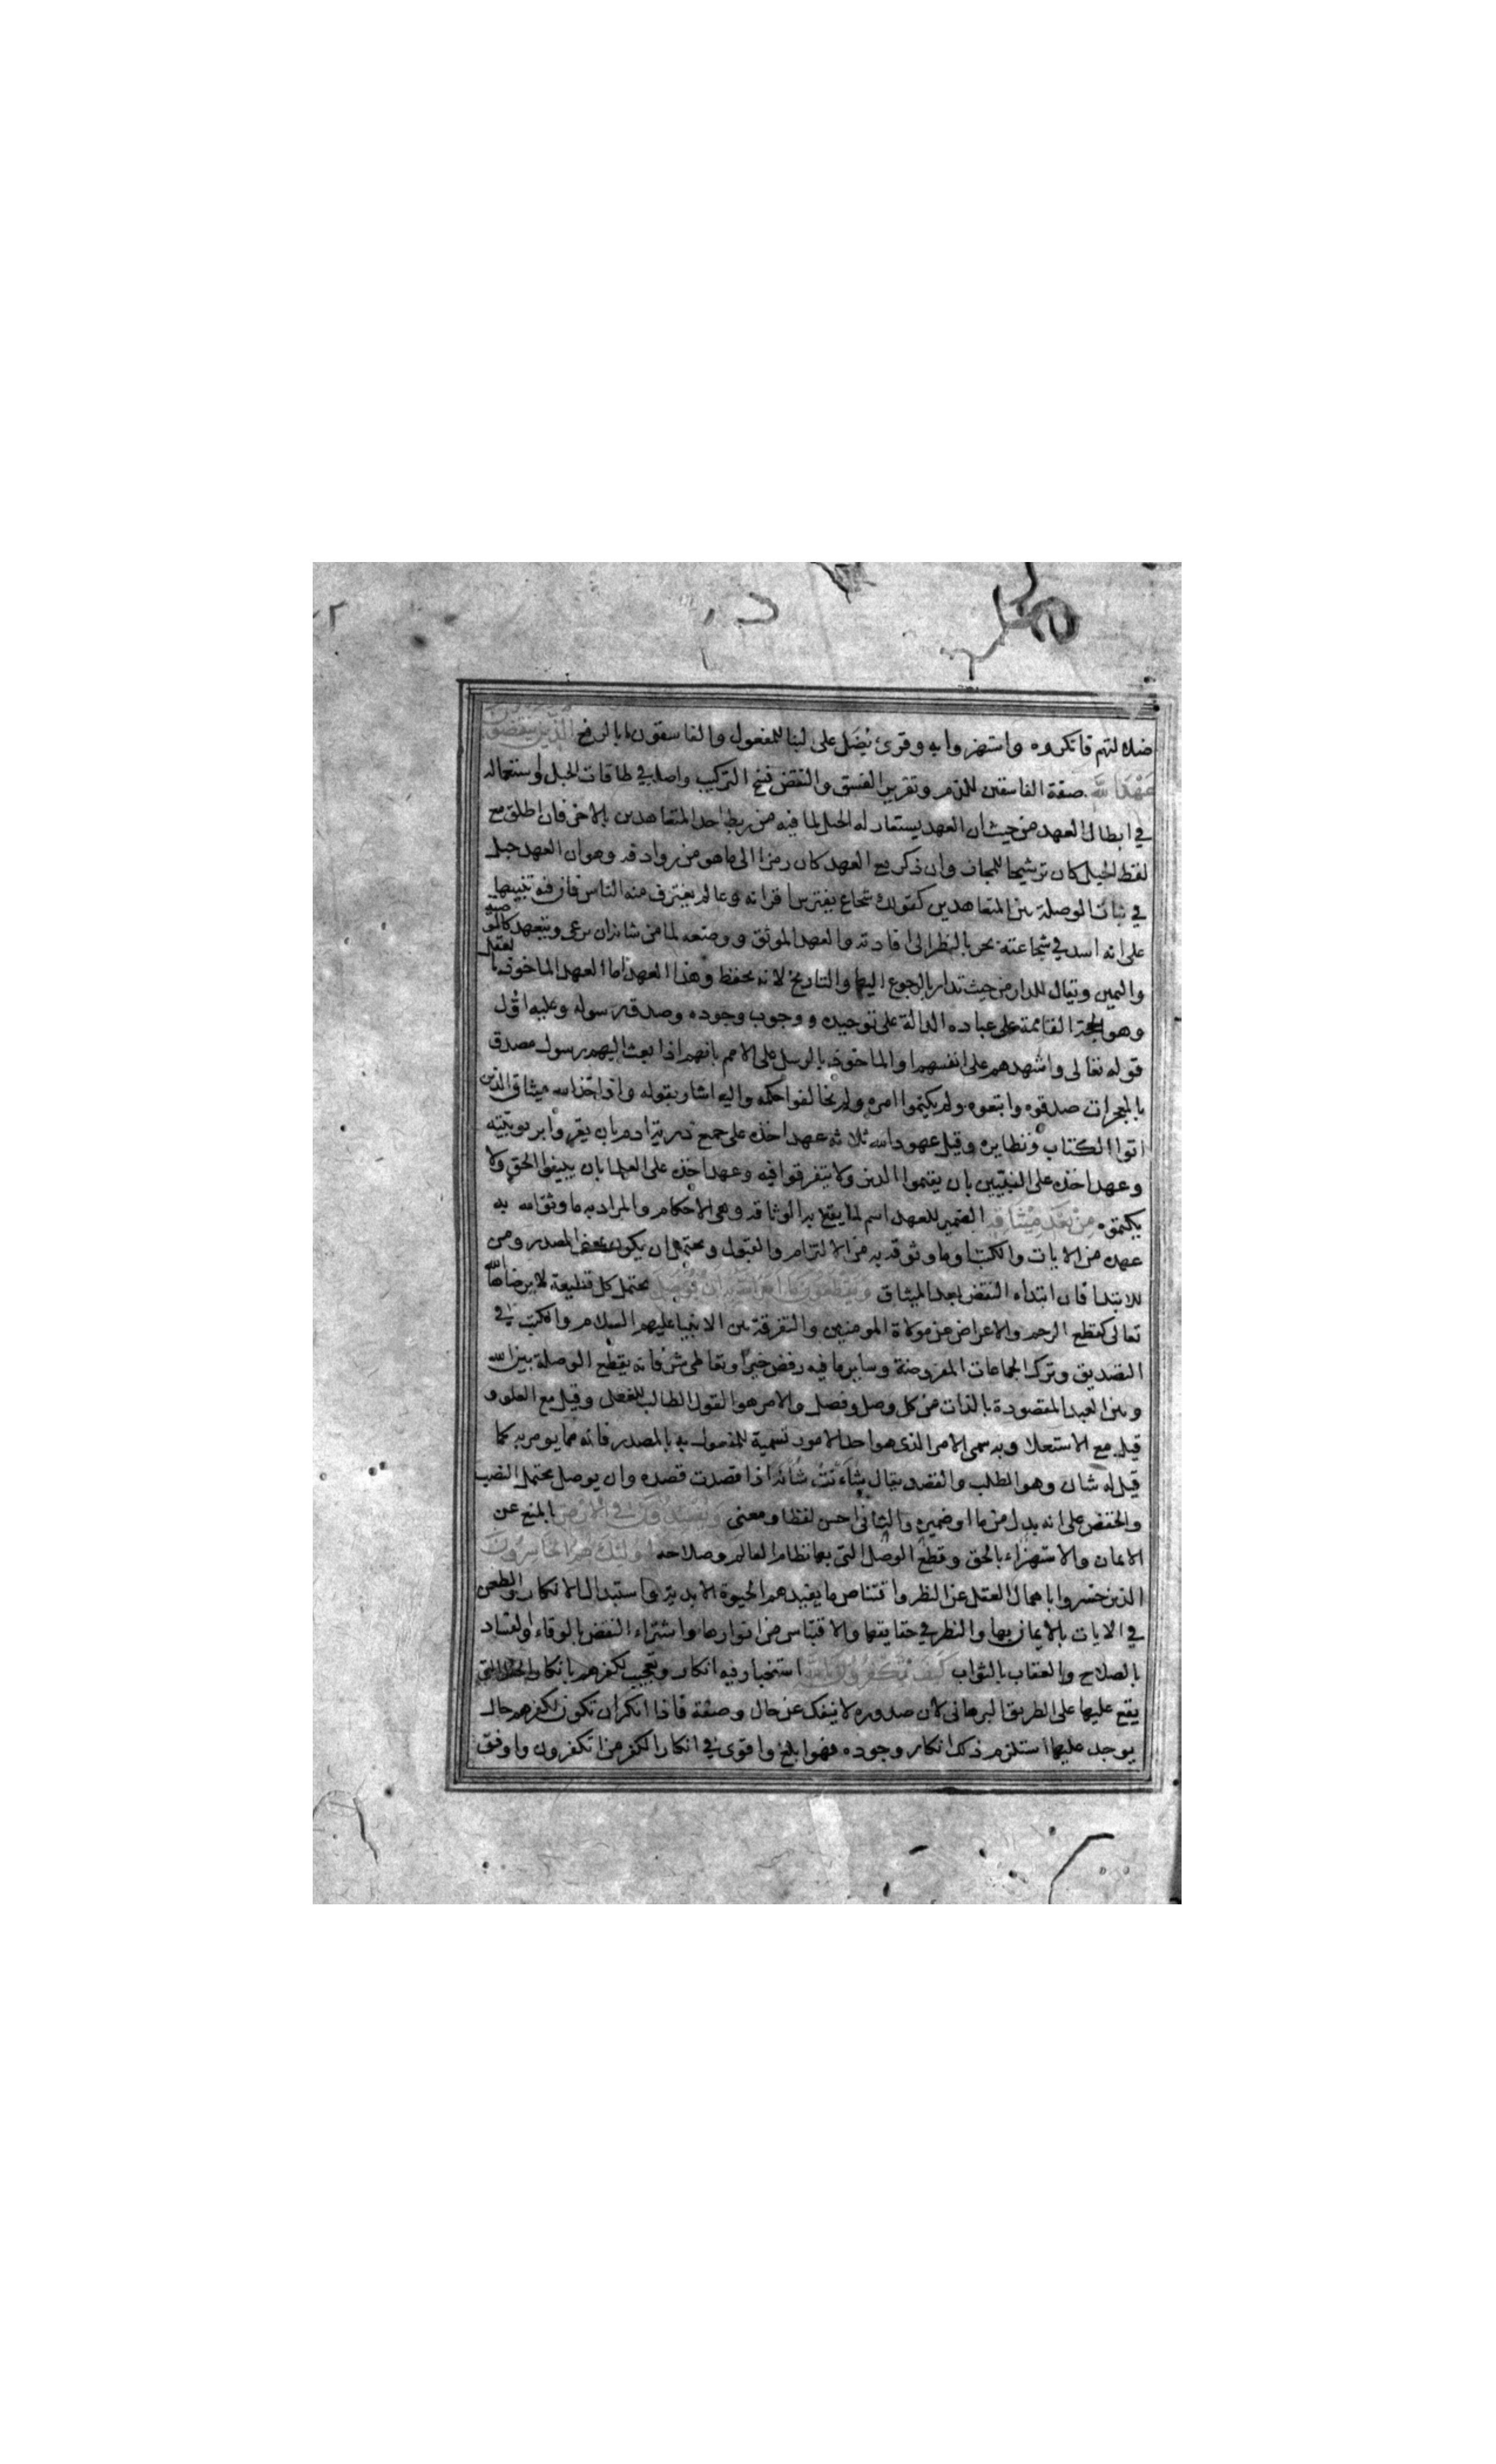 ضلالتهم فانكروه واستهزوا به وقرئ يُضَل على البنا للمفعول والفاسقون بالرفع الذين ينقضون
عهد الله صفة الفاسقين للذم وتقرير الفسق والنقض فسخ التركيب واصله في طاقات الحبل واستعماله
في ابطال العهد من حيث ان العهد يستعار له الحبل لما فيه من ربط احد المتعاهدين بالاخر فان اطلق مع
لفظ الحبل كان ترشيحا للمجاز وان ذكر مع العهد كان رمزا الى ما هو من روادفه وهو ان العهد حبل
في ثبات الوصلة بين المتعاهدين كقولك شجاع يفترس اقرانه وعالم يغترف منه الناس فان فيه تنبيها
على انه اسد في شجاعته بحر بالنظر الى افادته والعهد الموثق ووضعه لما من شانه ان يرعى ويتعهد كالوصية
واليمين ويقال للدار من حيث تدار بالرجوع اليها والتاريخ لانه يحفظ وهذا العهد اما العهد الماخوذ بالعقل
وهو الحجة القائمة على عباده الدالة على توحيده ووجوب وجوده وصدق رسوله وعليه اول
قوله تعالى واشهدهم على انفسهم او الماخوذ بالرسل على الامم بانهم اذا بعث اليهم رسول مصدق
بالمعجزات صدقوه واتبعوه ولم يكتموا امره ولم يخالفوا حكمه واليه اشار بقوله واذ اخذ الله ميثاق الذين
اتوا الكتاب ونظايره وقيل عهود الله ثلاثة عهد اخذه على جمع ذرية ادم بان يقروا بربوبيته
وعهد اخذه على النبيين بان يقيموا الدين ولا يتفرقوا فيه وعهد اخذه على العلما بان يبينوا الحق ولا
يكتموه من بعد ميثاقه الضمير للعهد اسم لما يقع به الوثاقة وهى الاحكام والمراد به ما وثق الله به
عهده من الايات والكتب او ما وثوقه به من الالتزام والقبول ويحتمل ان يكون بمعنى المصدر ومن
للابتدا فان ابتداء النقض بعد الميثاق ويقطعون ما امر الله به ان يوصل يحتمل كل قطيعة لا يرضاها الله
تعالى كقطع الرحم والاعراض عن موالاة المومنين والتفرقة بين الانبيا عليهم السلام والكتب في
التصديق وترك الجماعات المفروضة وساير ما فيه رفض خير او تعاطى شر فانه يقطع الوصلة بين الله
وبين العبد المقصودة بالذات من كل وصل وفصل والامر هو القول الطالب للفعل وقيل مع العلو و
قيل مع الاستعلا وبه سمى الامر الذى هو احد الامور تسمية للمفعول به بالمصدر فانه مما يومر به كما
قيل له شان وهو الطلب والقصد يقال شأنت شأنه اذا قصدت قصده وان يوصل يحتمل النصب
والخفض على انه بدل من ما او ضميره والثانى احسن لفظا ومعنى ويفسدون في الارض بالمنع عن
الايمان والاستهزاء بالحق وقطع الوصل التى بها نظام العالم وصلاحه اولئك هم الخاسرون
الذين خسروا باهمال العقل عن النظر واقتناص ما يفيدهم الحيوة الابدية واستبدال الانكار والطعن
في الايات بالايمان بها والنظر في حقايقها والاقتباس من انوارها واشتراء النقض بالوفاء والفساد
بالصلاح والعقاب بالثواب كيف تكفرون بالله استخبار فيه انكار وتعجيب لكفرهم بانكار الحال التى
يقع عليها على الطريق البرهانى لان صدوره لا ينفك عن حال وصفة فاذا انكر ان تكون لكفرهم حال
يوجد عليها استلزم ذلك انكار وجوده فهو ابلغ واقوى في انكار الكفر من اتكفرون واوفق